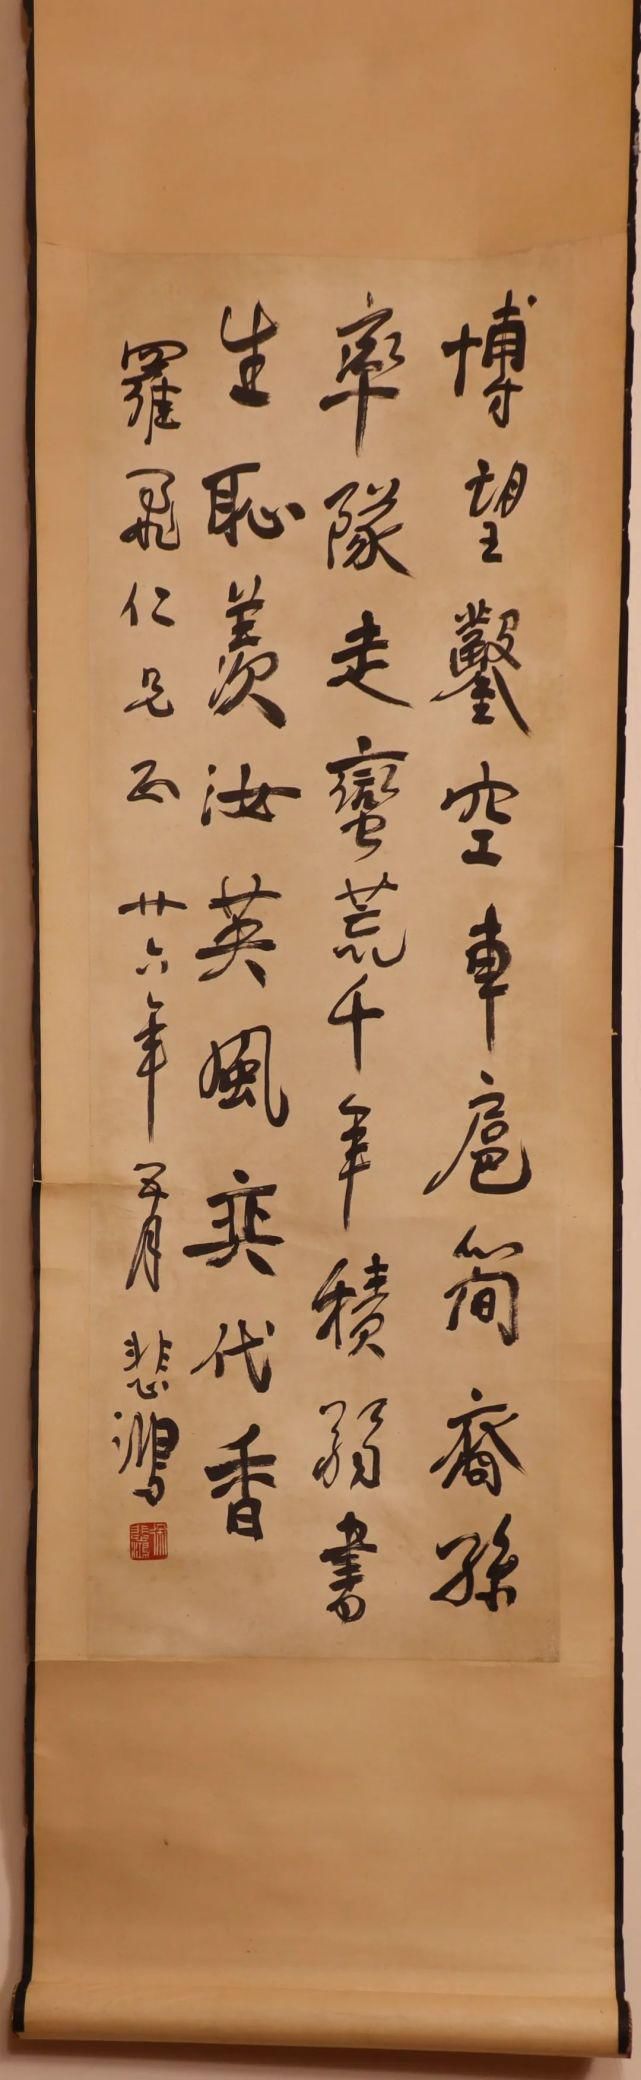 博望鑿空車扈簡裔孫
率隊走蠻荒千年積弱書
生恥羨汝英風奕代香
羅飛仁兄正 廿六年五月 悲鴻
徐悲鴻